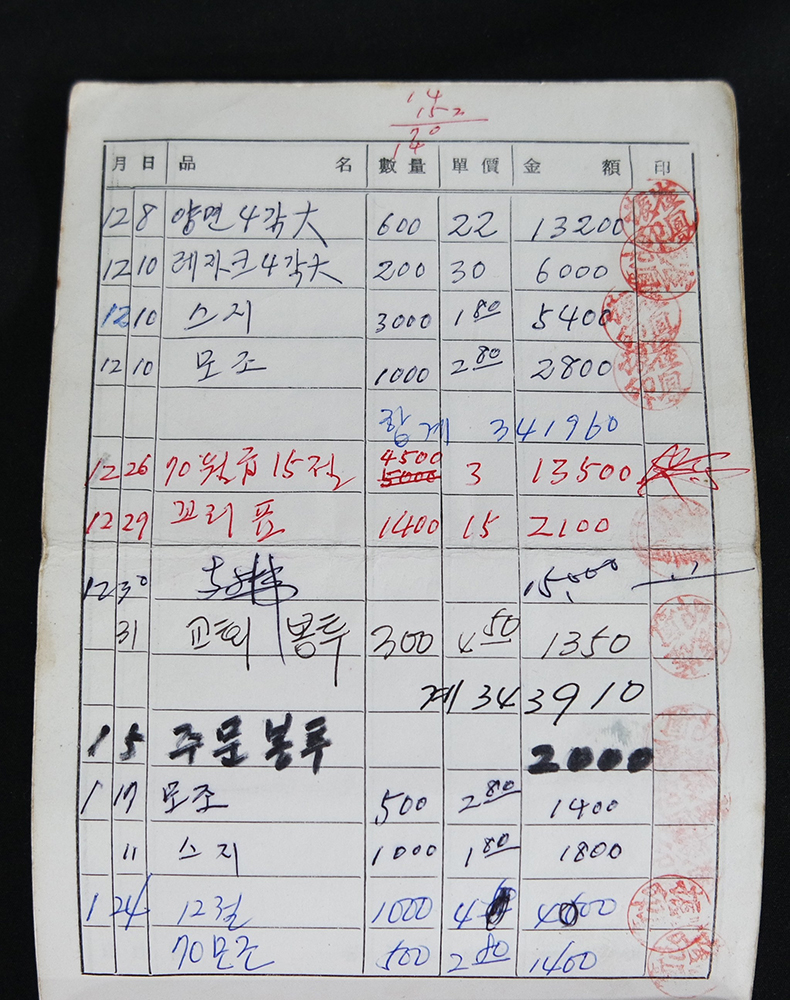 14
15 2
70
14
月 日 品 名 數量 單價 金 額 印
12 8 양면4각大 600 22 13200
12 10 레자크4각大 200 30 6000
12 10 스지 3000 1 80 5400
12 10 모조 1000 2 80 2800
합계 341960
12 26 70 15절 4500 5000 3 13500
12 29 꼬리표 1400 15 2100
12 30 15,000
31 교회 봉투 300 4 50 1350
계 343910
1 5 주문봉투 2000
1 17 모조 500 2 80 1400
11 스지 1000 1 80 1800
1 24 12절 1000 4 4000
70모조 500 2 80 1400